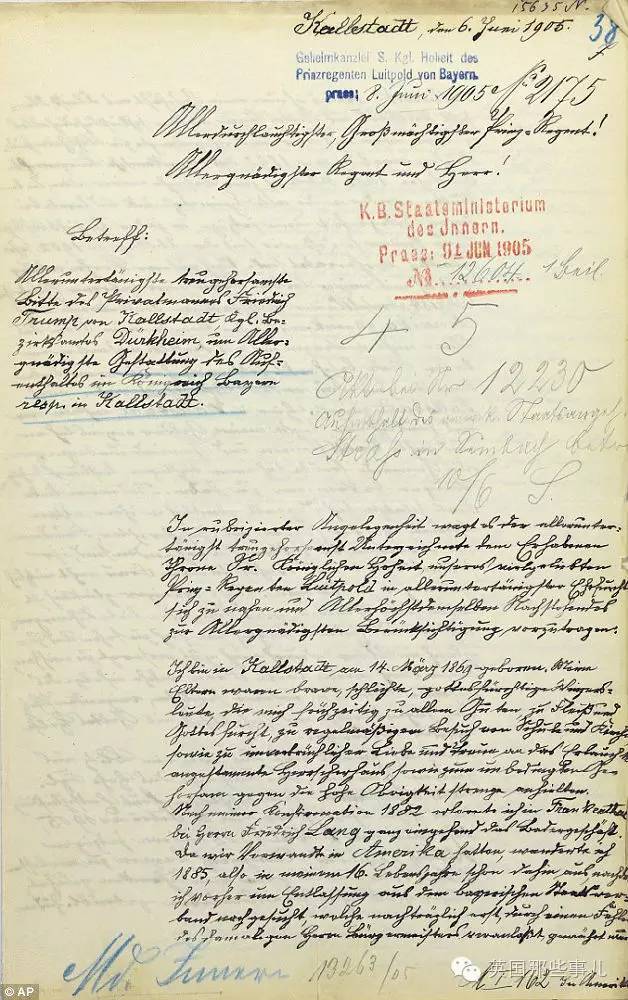 15635 N.
Kallstadt, den 6. Juni 1905.
38
Geheimkanzlei S. Kgl. Hoheit des
Prinzregenten Luitpold von Bayern.
praes: 8. Juni 1905 No 2175
Allerdurchlauchtigster, Großmächtigster Prinz-Regent!
Allergnädigster Regent und Herr!
K.B. Staatsministerium
des Innern.
Praes: 9. JUN. 1905
No 12604. 1 Beil.
Betreff:
Alleruntertänigste treugehorsamste
Bitte des Privatmannes Friedrich
Trump von Kallstadt Kgl. Be-
zirksamtes Dürkheim, um Aller-
gnädigste Gestattung des Auf-
enthaltes im Königreich Bayern
resp. in Kallstadt.
4 5
Nr 12230
Aufenthalt des Staatsangeh
in
10/6 S.
In rubrizierter Angelegenheit wagt es der allerunter-
tänigst treugehorsamst Unterzeichnete dem Erhabenen
Throne Sr. Königlichen Hoheit unseres vielgeliebten
Prinz-Regenten Luitpold in alleruntertänigster Ehrfurcht
sich zu nahen und Allerhöchstdemselben Nachstehendes
zur Allergnädigsten Berücksichtigung vorzutragen.
Ich bin in Kallstadt, am 14. März 1869 geboren. Meine
Eltern waren brave, schlichte, gottesfürchtige Winzers-
leute, die mich frühzeitig zu allem Guten, zu Fleiß und
Gottesfurcht, zu regelmäßigem Besuch von Schule und Kirche
sowie zu unverbrüchlicher Liebe und Treue an das
angestammte Herrscherhaus, sowie zum unbedingten Ge-
horsam gegen die hohe Obrigkeit strenge anhielten.
Nach meiner Konfirmation 1882 erlernte ich in Frankenthal
bei Herrn Friedrich Lang ganz eingehend das Badergeschäft.
Da wir Verwandte in Amerika hatten, wanderte ich
1885, also in meinem 16. Lebensjahre schon dahin aus, nachdem
ich vorher um Entlassung aus dem bayerischen Staatsver-
band nachgesucht, welche nachträglich erst, durch einen Fehler
des damaligen Herrn Bürgermeisters veranlaßt, gewährt
Md. Innern 13263/05
in Amerika
© AP
英国那些事儿